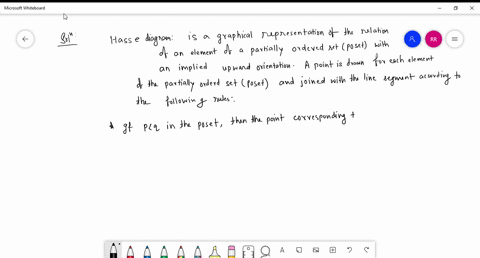 Microsoft Whiteboard
Solⁿ
Hasse diagram: is a graphical representation of the relation
of an element of a partially ordered set (poset) with
an implied upward orientation. A point is drawn for each element
of the partially orderd set (poset) and joined with the line segment acording to
the following rules:
* If p<q in the poset, then the point corresponding t
RR